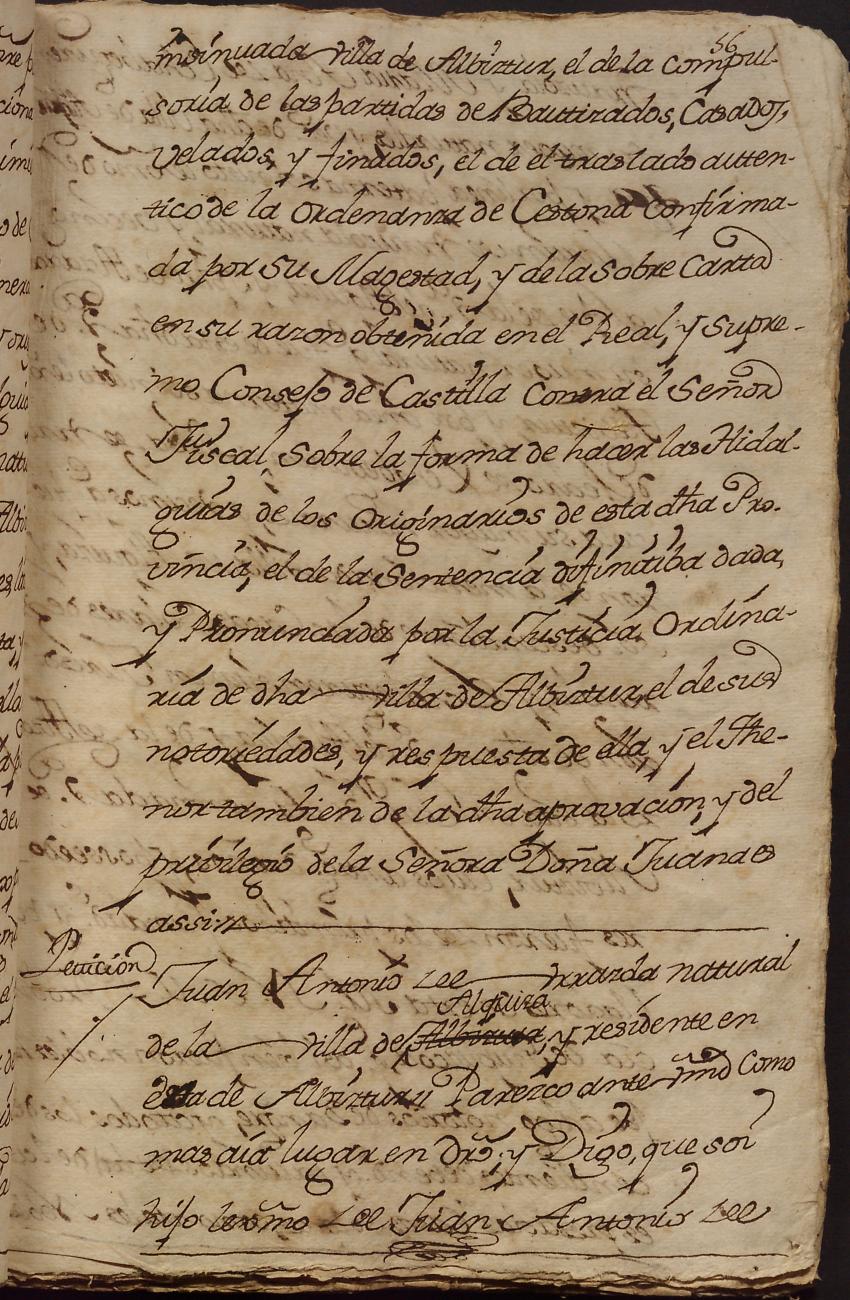 56
insinuada villa de Albiztur, el de la compul-
soria de las partidas de Bautizados, Casados,
Velados, y finados, el de el traslado auten-
tico de la Ordenanza de Cestona confirma-
da por Su Magestad, y de la sobre Carta
en su razon obtenida en el Real, y Supre-
mo Consejo de Castilla contra el Señor
Fiscal sobre la forma de hacer las Hidal-
guias de los Originarios de esta dha Pro-
vincia, el de la Sentencia difinitiba dada,
y Pronunciada por la Justicia Ordina-
ria de dha villa de Albiztur, el de sus
notoriedades, y respuesta de ella, y el the-
nor tambien de la dha aprovacion, y del
privilegio de la Señora Doña Juana es
assi
Peticion
Juan Antonio Lee natural
Alquiza
de la villa de Albiztur, y residente en
esta de Albiztur, Parezco ante vmd como
mas aia lugar en dro, y Digo, que soi
hijo lexmo Lee Juan Antonio Lee